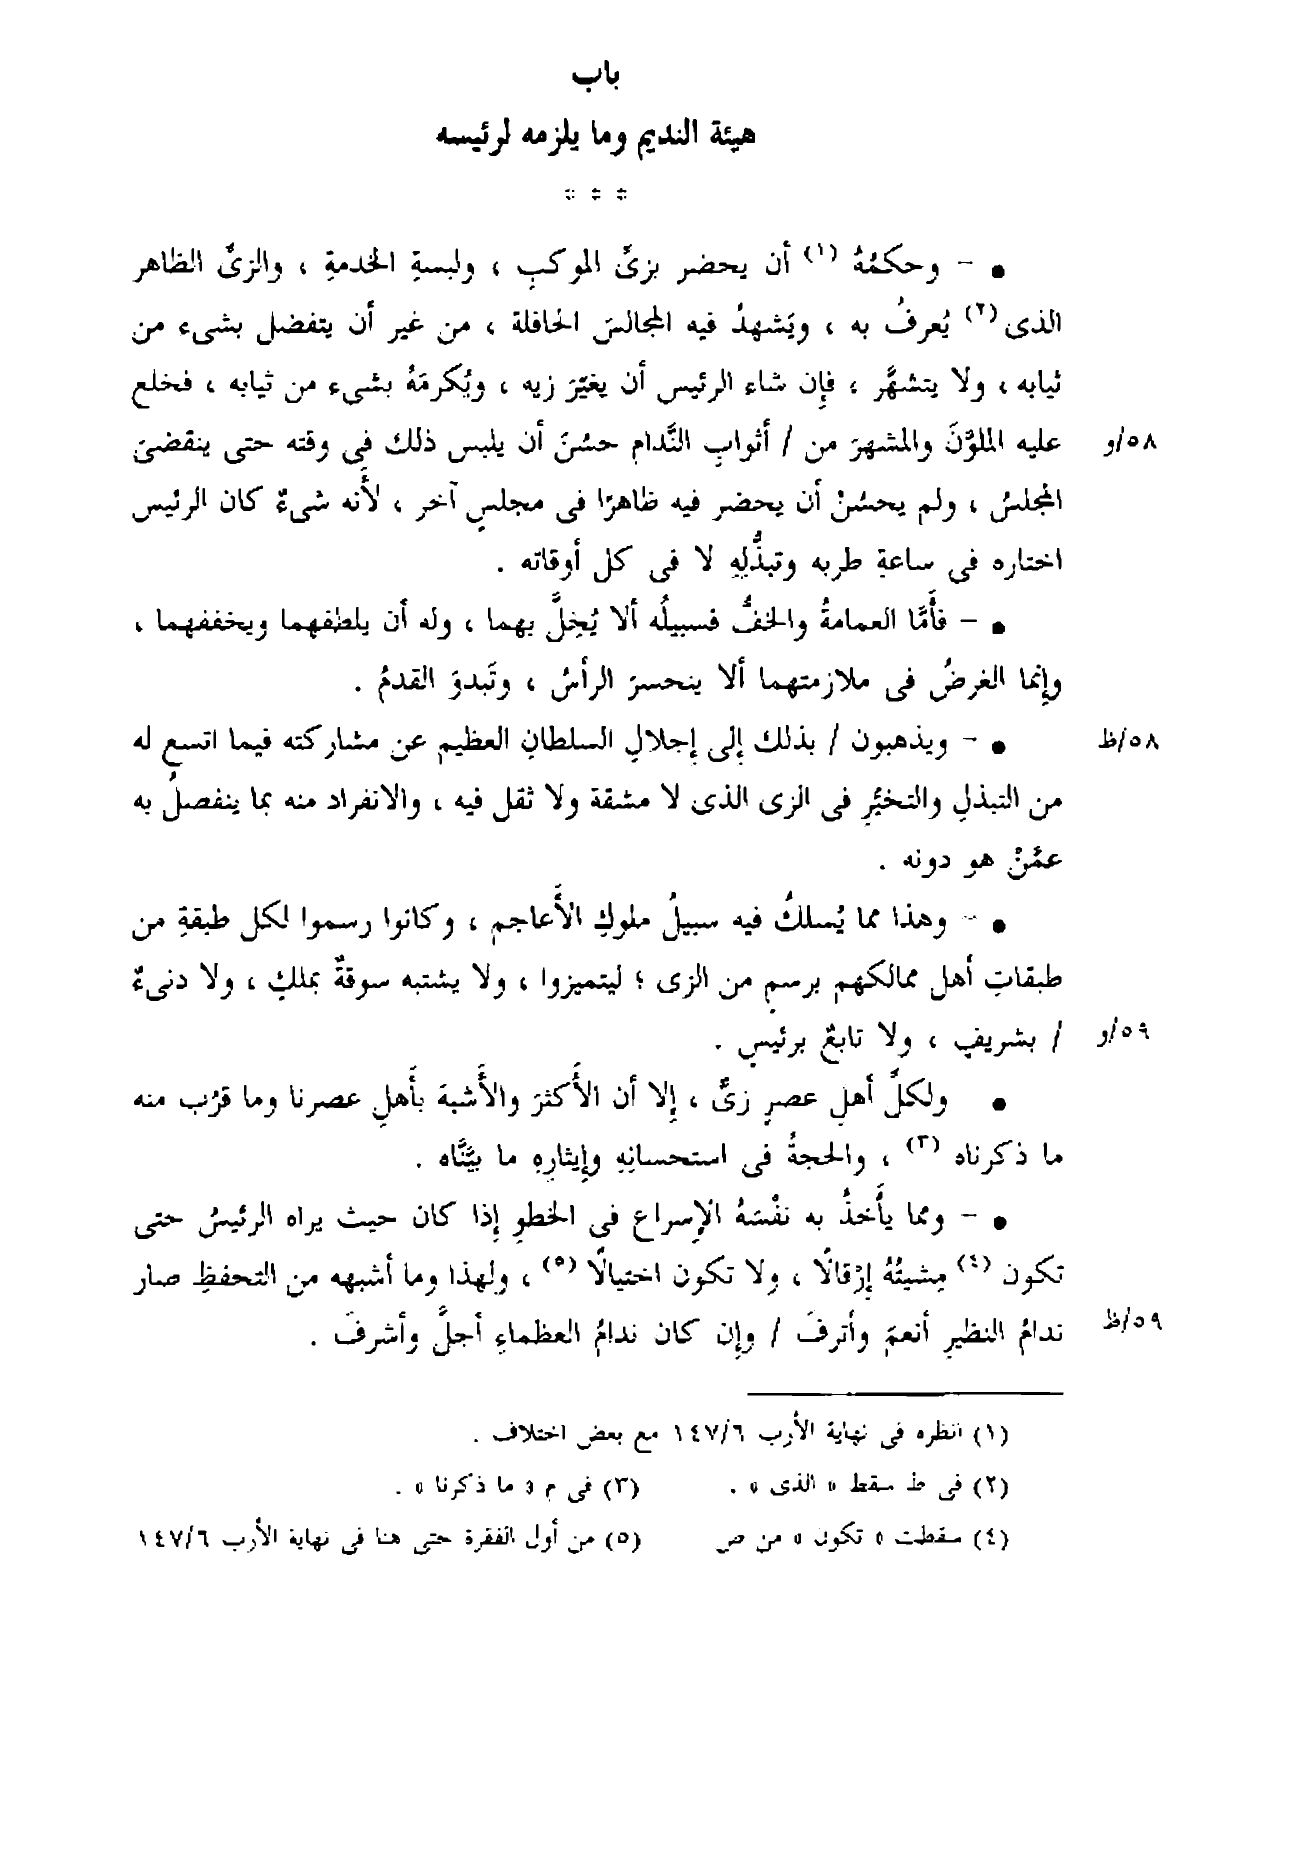 باب
هيئة النديم وما يلزمه لرئيسه
* * *
● – وحكمُهُ (١) أن يحضر بزىِّ الموكبِ ، ولبسةِ الخدمةِ ، والزىِّ الظاهر
الذى (٢) يُعرفُ به ، ويَشهدُ فيه المجالسَ الحافلة ، من غير أن يتفضل بشىء من
ثيابه ، ولا يتشهَّر ، فإِن شاء الرئيس أن يغيّرَ زيه ، ويُكرمَهُ بشىء من ثيابه ، فخلع
عليه الملوَّنَ والمشهرَ من / أثوابِ النَّدام حسُنَ أن يلبس ذلك فى وقته حتى ينقضىَ ٥٨/و
المجلسُ ، ولم يحسُنْ أن يحضر فيه ظاهرًا فى مجلسٍ آخر ، لأَنه شىءٌ كان الرئيس
اختاره فى ساعةِ طربه وتبذُّلِهِ لا فى كل أوقاته .
● – فأَمَّا العمامةُ والخفُّ فسبيلُه ألا يُخِلَّ بهما ، وله أن يلطفهما ويخففهما ،
وإِنما الغرضُ فى ملازمتهما ألا ينحسرَ الرأسُ ، وتَبدوَ القدمُ .
● – ويذهبون / بذلك إلى إجلالِ السلطانِ العظيم عن مشاركته فيما اتسع له ٥٨/ظ
من التبذلِ والتخيُّرِ فى الزى الذى لا مشقة ولا ثقل فيه ، والانفراد منه بما ينفصلُ به
عمَّنْ هو دونه .
● – وهذا مما يُسلكُ فيه سبيلُ ملوكِ الأَعاجم ، وكانوا رسموا لكل طبقةٍ من
طبقاتِ أهل ممالكهم برسمٍ من الزى ؛ ليتميزوا ، ولا يشتبه سوقةٌ بملكٍ ، ولا دنىءٌ
/ بشريفٍ ، ولا تابعٌ برئيسٍ . ٥٩/و
● ولكلِّ أهلِ عصرٍ زىٌّ ، إلا أن الأَكثرَ والأَشبهَ بأَهلِ عصرنا وما قرُب منه
ما ذكرناه (٣) ، والحجةُ فى استحسانِهِ وإيثارِهِ ما بيَّنَّاه .
● – ومما يأخذُ به نفْسَهُ الإسراع فى الخطوِ إذا كان حيث يراه الرئيسُ حتى
تكون (٤) مِشيتُهُ إرْقالًا ، ولا تكون اختيالًا (٥) ، ولهذا وما أشبهه من التحفظِ صار
ندامُ النظيرِ أنعمَ وأترفَ / وإن كان ندامُ العظماءِ أجلَّ وأشرفَ . ٥٩/ظ
(١) انظره فى نهاية الأرب ١٤٧/٦ مع بعض اختلاف .
(٢) فى ط سقط « الذى » . (٣) فى م « ما ذكرنا » .
(٤) سقطت « تكون » من ص (٥) من أول الفقرة حتى هنا فى نهاية الأرب ١٤٧/٦